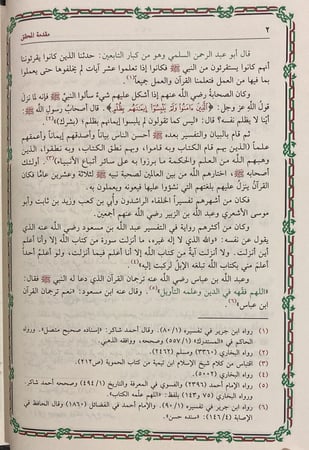 ٢
مقدمة المحقق
قال أبو عبد الرحمن السلمي وهو من كبار التابعين: حدثنا الذين كانوا يقرئوننا
أنهم كانوا يستقرئون من النبي ﷺ فكانوا إذا تعلموا عشر آيات لم يخلفوها حتى يعملوا
بما فيها من العمل فتعلمنا القرآن والعمل جميعاً(١).
وكان الصحابة رضي الله عنهم إذا أشكل عليهم شيء سألوا النبي ﷺ فإنه لما نزل
قول الله عز وجل: ﴿الَّذِينَ آمَنُوا وَلَمْ يَلْبِسُوا إِيمَانَهُم بِظُلْمٍ﴾ قال أصحاب رسول الله ﷺ:
أيّنا لا يظلم نفسه؟ قال: اليس كما تقولون لم يلبسوا إيمانهم بظلم؛ (بشرك)(٢).
ثم قام بالبيان والتفسير بعده ﷺ أحسن الناس بياناً وأصدقهم إيماناً وأعمقهم
علماً (الذين بهم قام الكتاب وبه قاموا، وبهم نطق الكتاب، وبه نطقوا، الذين
وهبهم الله من العلم والحكمة ما برزوا به على سائر أتباع الأنبياء)(٣). أولئك
أصحابه ﷺ، اختارهم الله من بين العالمين لصحبة نبيه ﷺ ثلاثة وعشرين عامًا فكان
القرآن ينزل عليهم بلغتهم التي نشؤا عليها فيعونه ويعملون به.
فكان من أشهرهم تفسيراً الخلفاء الراشدون وأبي بن كعب وزيد بن ثابت وأبو
موسى الأشعري وعبد الله بن الزبير رضي الله عنهم أجمعين.
وكان من أكثرهم رواية في التفسير عبد الله بن مسعود رضي الله عنه الذي
يقول عن نفسه: «والله الذي لا إله غيره، ما أنزلت سورة من كتاب الله إلا وأنا أعلم
أين أنزلت. ولا أنزلت آية من كتاب الله إلا أنا أعلم فيما أنزلت، ولو أعلم أحداً
أعلم مني بكتاب الله تبلغه الإبل لركبت إليه»(٤).
وعبد الله بن عباس رضي الله عنه ترجمان القرآن الذي دعا له النبي ﷺ فقال:
«اللهم فقهه في الدين وعلمه التأويل»(٥). وقال عنه ابن مسعود: «نعم ترجمان القرآن
ابن عباس»(٦).
(١) رواه ابن جرير في تفسيره (٨٠/١). وقال أحمد شاكر: «إسناده صحيح متصل». ورواه
الحاكم في «المستدرك» (٥٥٧/١) وصححه، ووافقه الذهبي.
(٢) رواه البخاري (٣٣٦٠) ومسلم (٢٤٢).
(٣) اقتباس من كلام شيخ الإسلام ابن تيمية من كتاب الحموية (ص٢١٢).
(٤) رواه البخاري (٥٠٠٢).
(٥) رواه الإمام أحمد (٢٣٩٦) والفسوي في المعرفة والتاريخ (٤٩٤/١) وصححه أحمد شاكر
ورواه البخاري (٧٥ و١٤٣) بلفظ: «اللهم علمه الكتاب».
(٦) رواه ابن جرير في تفسيره (٩٠/١). والإمام أحمد في الفضائل (١٨٦٠) وقال الحافظ في
الإصابة (١٤٦/٤): «سنده حسن».